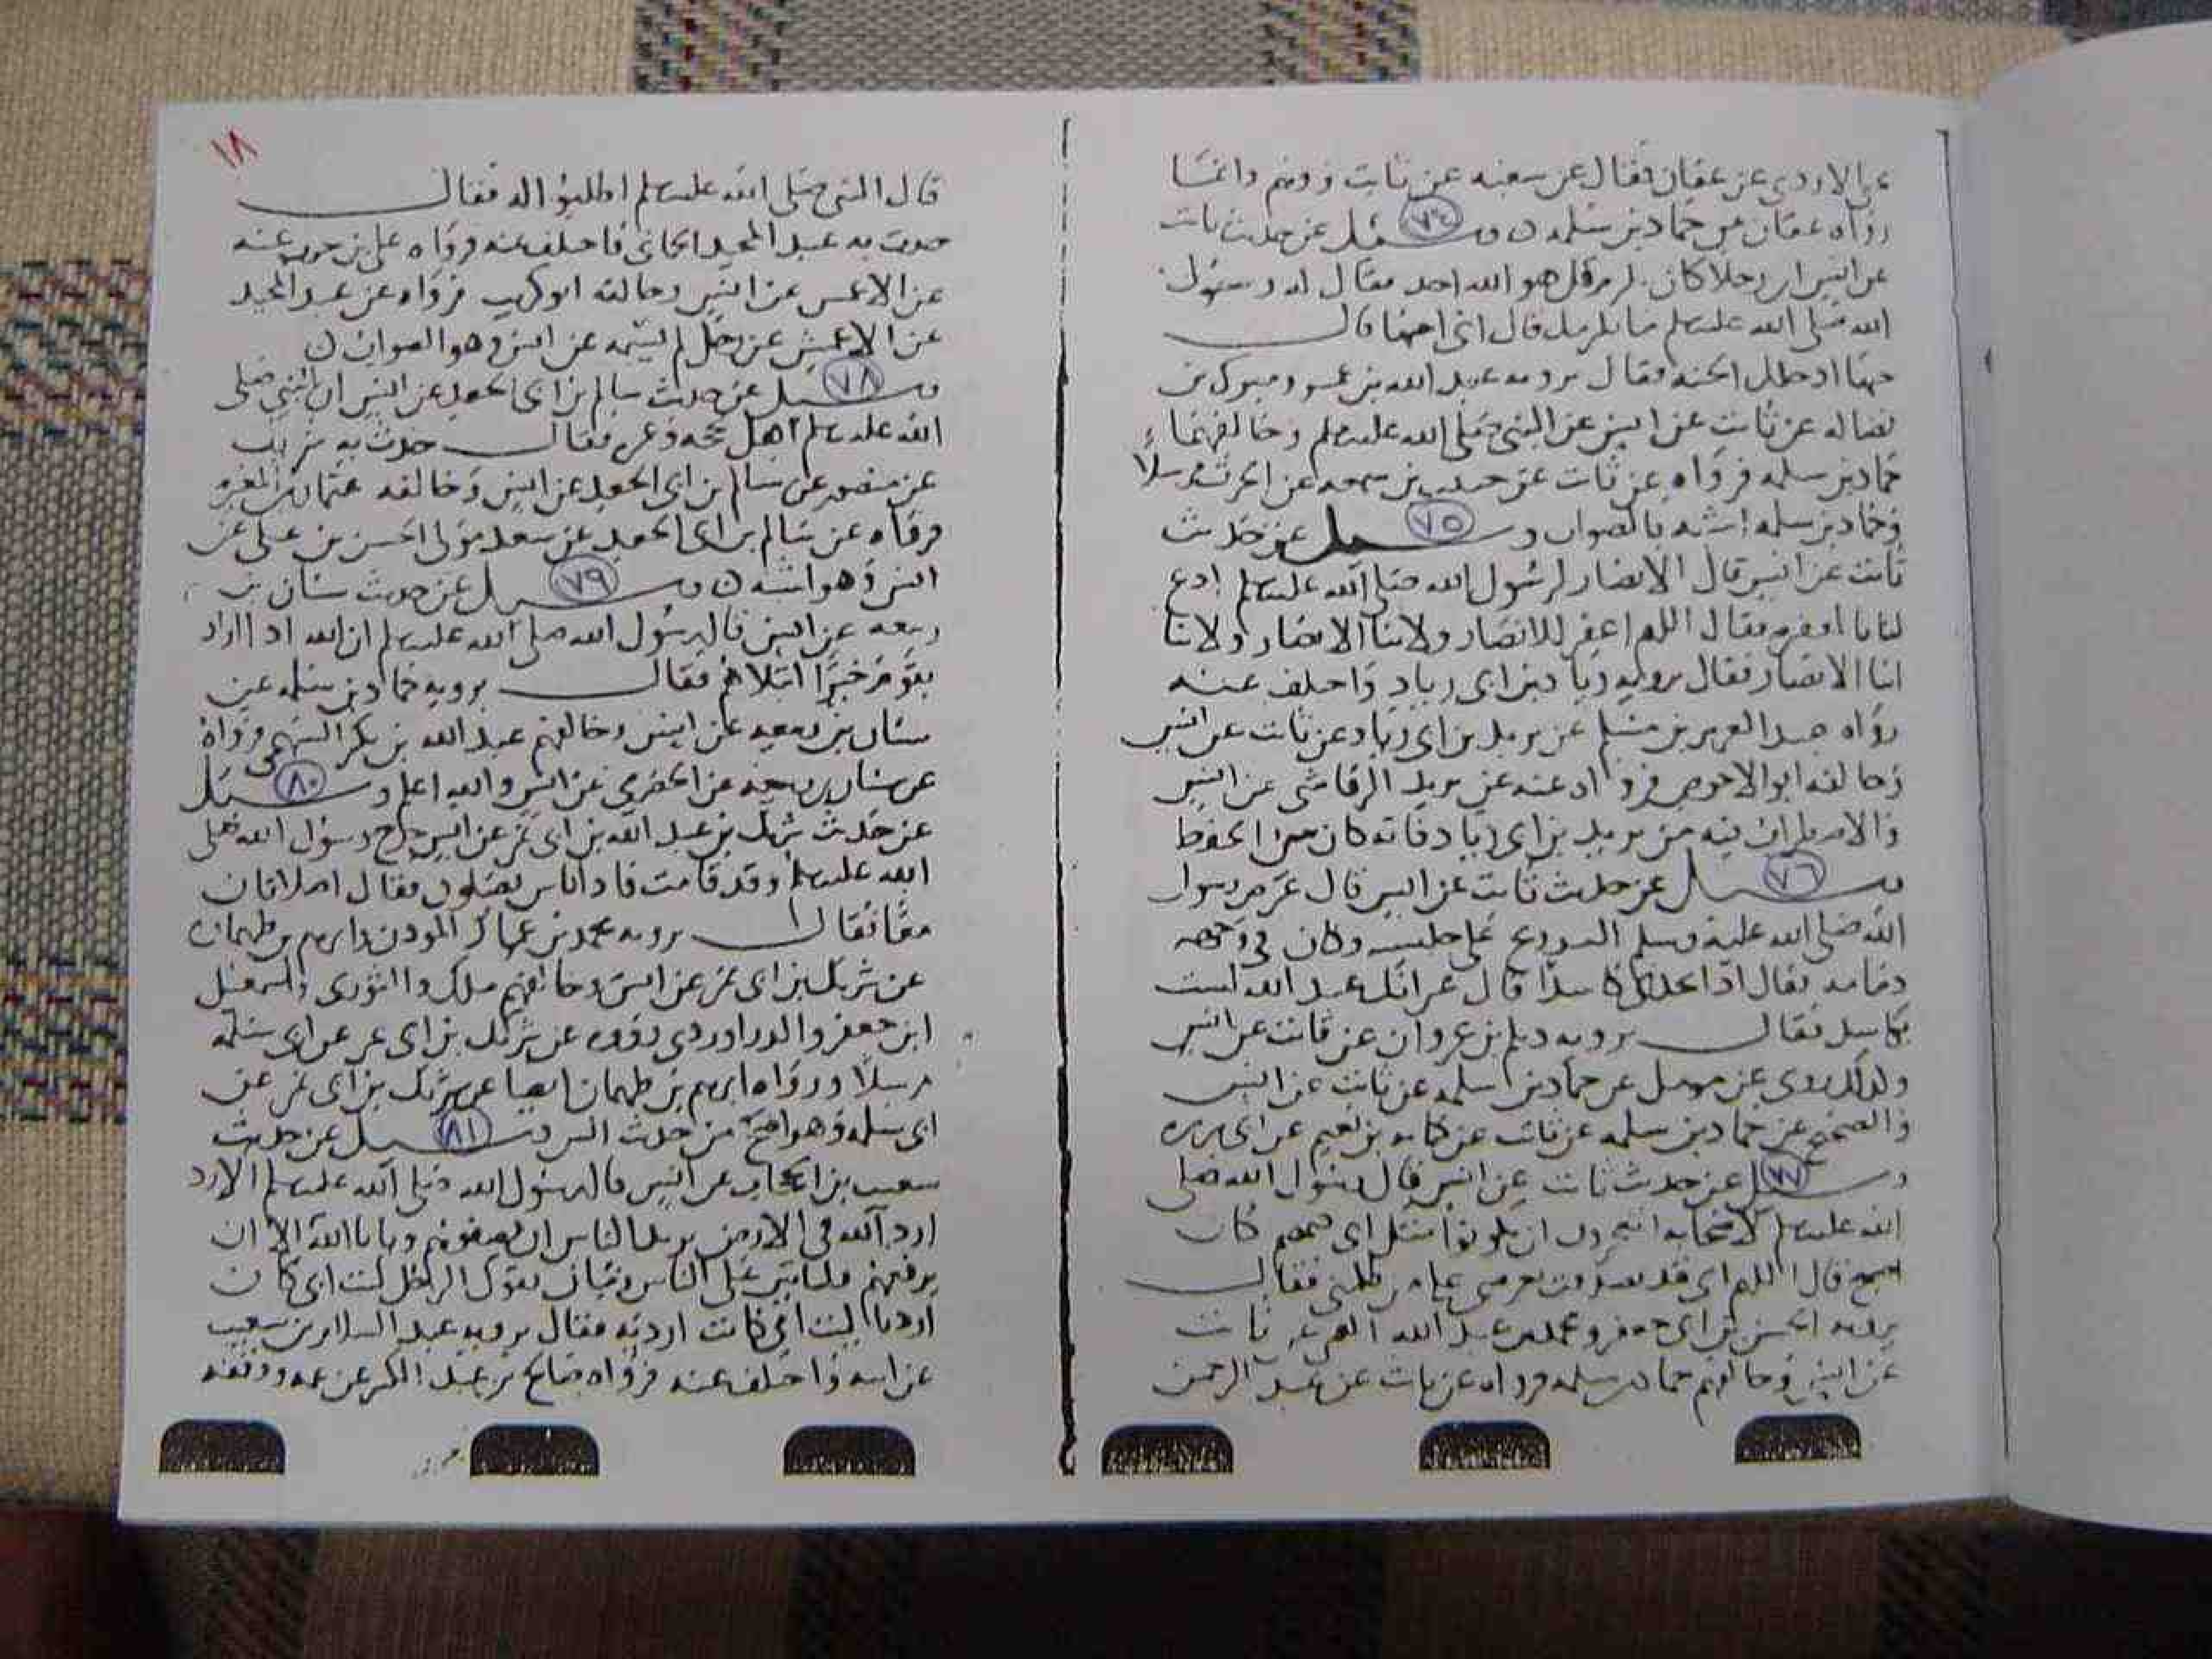 على الازدي عن عفان فقال عن شعبه عن ثابت ووهم وانما
رواه عفان عن حماد بن سلمه ٧٤ وسئل عن حديث ثابت
عن انس ان رجلا كان يلزم قل هو الله احد فقال له رسول
الله صلى الله عليه وسلم ما يلزمك قال اني احبها قال
حبها ادخلك الجنه فقال يرويه عبيد الله بن عمر ومبرك بن
فضاله عن ثابت عن انس عن النبي صلى الله عليه وسلم وخالفهما
حماد بن سلمه فرواه عن ثابت عن حبيب بن سبيعه عن الحرث مرسلا
وحماد بن سلمه اشبه بالصواب وسئل ٧٥ عن حديث
ثابت عن انس قال الانصار لرسول الله صلى الله عليه وسلم ادع
لنا فقال اللهم اغفر للانصار ولابنا الانصار ولابنا
ابنا الانصار فقال يرويه زياد بن ابي زياد واختلف عنه
رواه عبد العزيز بن مسلم عن يزيد بن ابي زياد عن ثابت عن انس
وخالفه ابو الاحوص فرواه عنه عن يزيد الرقاشي عن انس
والاضطراب فيه من يزيد بن ابي زياد فانه كان الحفظ
وسئل ٧٦ عن حديث ثابت عن انس قال عرض رسول
الله صلى الله عليه وسلم التزويج على جليبيب وكان في وجهه
دمامه فقال اذا تجدني كاسدا قال غير انك عند الله لست
بكاسد فقال يرويه ديلم بن غزوان عن ثابت عن انس
وكذلك روى عن مومل عن حماد بن سلمه عن ثابت عن انس
والصحيح عن حماد بن سلمه عن ثابت عن كنانه بن نعيم عن ابي برزه
وسئل ٧٧ عن حديث ثابت عن انس قال رسول الله صلى
الله عليه وسلم لاصحابه اتعجزون ان تكونوا مثل ابي ضمضم كان
اذا اصبح قال اللهم اني قد تصدقت بعرضي على من ظلمني فقال
يرويه الحسن بن ابي جعفر ومحمد بن عبد الله العمي عن ثابت
عن انس وخالفهم حماد بن سلمه فرواه عن ثابت عن عبد الرحمن
١٨
قال النبي صلى الله عليه وسلم اطلبوا فقال
حدث به عبد الحميد الحماني فاختلف عنه فرواه علي بن حرب عنه
عن الاعمش عن انس وخالفه ابو كريب فرواه عن عبد الحميد
عن الاعمش عن رجل لم يسمه عن انس وهو الصواب
وسئل ٧٨ عن حديث سالم بن ابي الجعد عن انس ان النبي صلى
الله عليه وسلم اهل بحجه وعمره فقال حدث به شريك
عن منصور عن سالم بن ابي الجعد عن انس وخالفه عثمان بن المغيره
فرواه عن سالم بن ابي الجعد عن سعد مولى الحسن بن علي عن
انس وهو اشبه وسئل ٧٩ عن حديث سنان بن
ربيعه عن انس قال رسول الله صلى الله عليه وسلم ان الله اذا اراد
بقوم خيرا ابتلاهم فقال يرويه حماد بن سلمه عن
سنان بن ربيعه عن انس وخالفهم عبد الله بن بكر السهمي فرواه
عن سنان بن ربيعه عن الحضرمي عن انس والله اعلم وسئل ٨٠
عن حديث شريك بن عبد الله بن ابي نمر عن انس خرج رسول الله صلى
الله عليه وسلم وقد قامت فاذا ناس يصلون فقال اصلاتان
معا فقال يرويه محمد بن عمار المودن وابرهيم بن طهمان
عن شريك بن ابي نمر عن انس وخالفهم ملك والثوري واسمعيل
ابن جعفر والدراوردي رووه عن شريك بن ابي نمر عن ابي سلمه
مرسلا ورواه ابرهيم بن طهمان ايضا عن شريك بن ابي نمر عن
ابي سلمه وهو اصح من حديث انس وسئل ٨١ عن حديث
شعيب بن الحبحاب عن انس قال رسول الله صلى الله عليه وسلم الازد
ازد الله في الارض يريد الناس ان يضعوهم ويابا الله الا ان
يرفعهم ولياتين على الناس زمان يقول الرجل ليت ابي كان
ازديا ليت امي كانت ازديه فقال يرويه عبد السلام بن شعيب
عن ابيه واختلف عنه فرواه صالح بن عبد الكبير عن عمه ورفعه